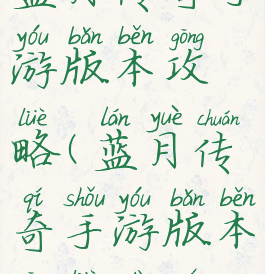 yóu bǎn běn gōng
游版本攻
lüè lán yuè chuán
略(蓝月传
qí shǒu yóu bǎn běn
奇手游版本